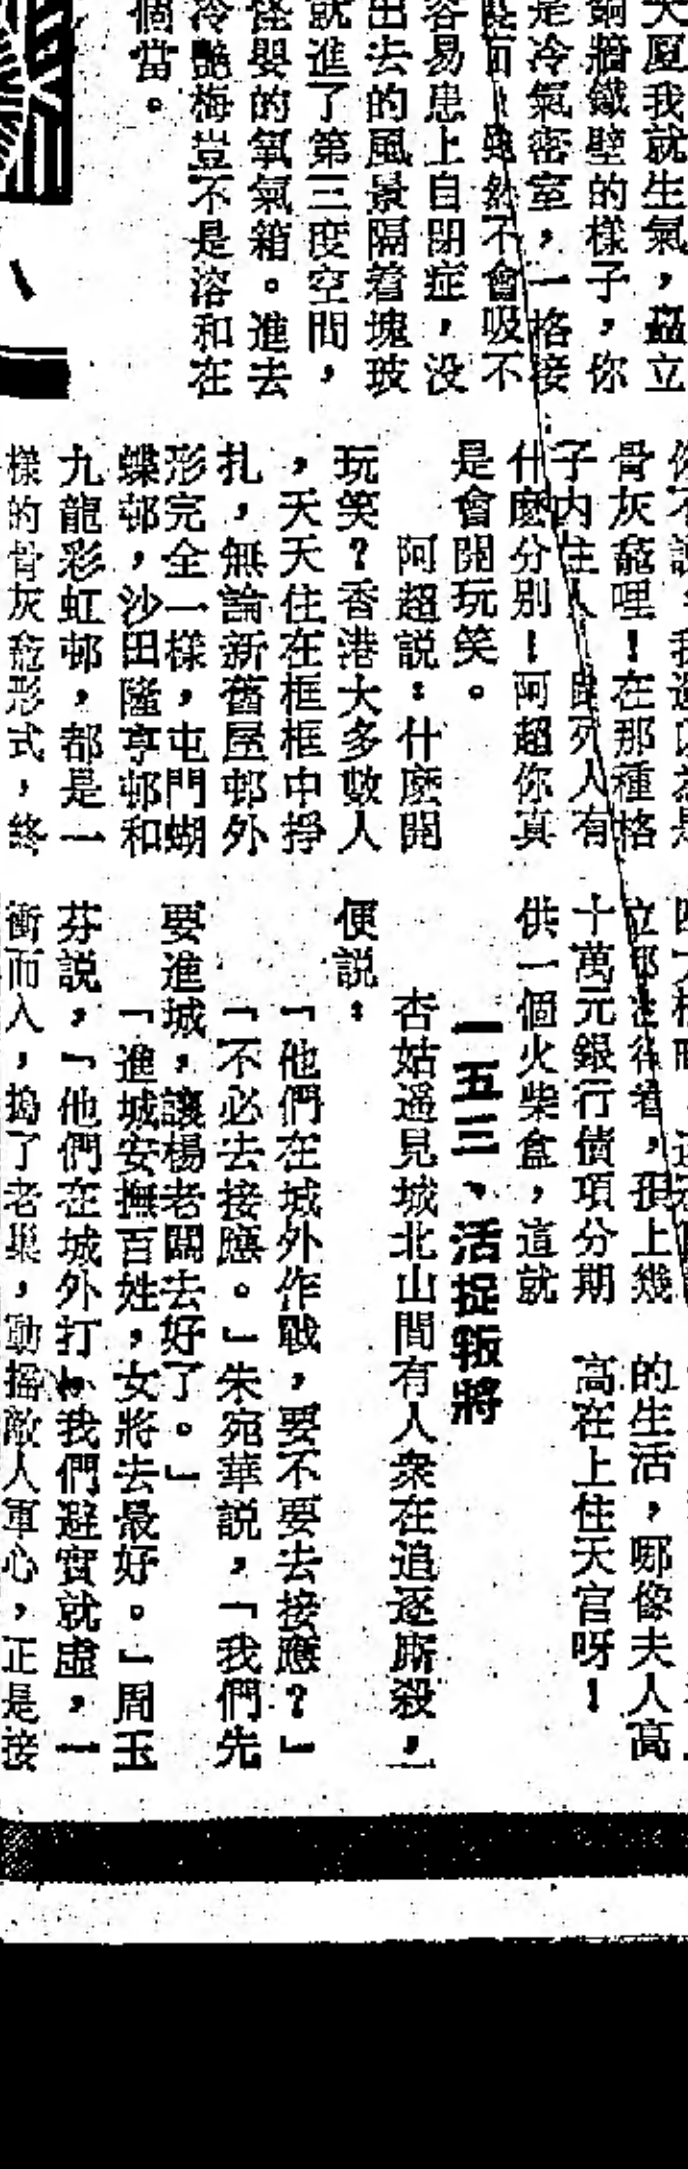 大厦我就生氣，矗立
銅牆鐵壁的樣子，你
是冷氣密室，一格接
面，雖然不會吸不
容易患上自閉症，没
出去的風景隔着塊玻
就進了第三度空間，
怪嬰的氧氣箱。進去
冷艷梅豈不是溶和在
個當。
骨灰龕哩！在那種格
子内住人，與死人有
什麽分别！阿超你真
是會開玩笑。
阿超説：什麽開
玩笑？香港大多數人
，天天住在框框中掙
扎，無論新舊屋邨外
形完全一樣，屯門蝴
蝶邨，沙田隆亨邨和
九龍彩虹邨，都是一
樣的骨灰龕形式，終
十萬元銀行債項分期
供一個火柴盒，這就
的生活，哪像夫人高
高在上住天宫呀！
一五三、活捉叛將
杏姑遥見城北山間有人衆在追逐厮殺，
便説：
「他們在城外作戰，要不要去接應？」
「不必去接應。」朱宛華説，「我們先
要進城，讓楊老闆去好了。」
「進城安撫百姓，女將去最好。」周玉
芬説，「他們在城外打，我們避實就虚，一
衝而入，搗了老巢，動摇敵人軍心，正是接